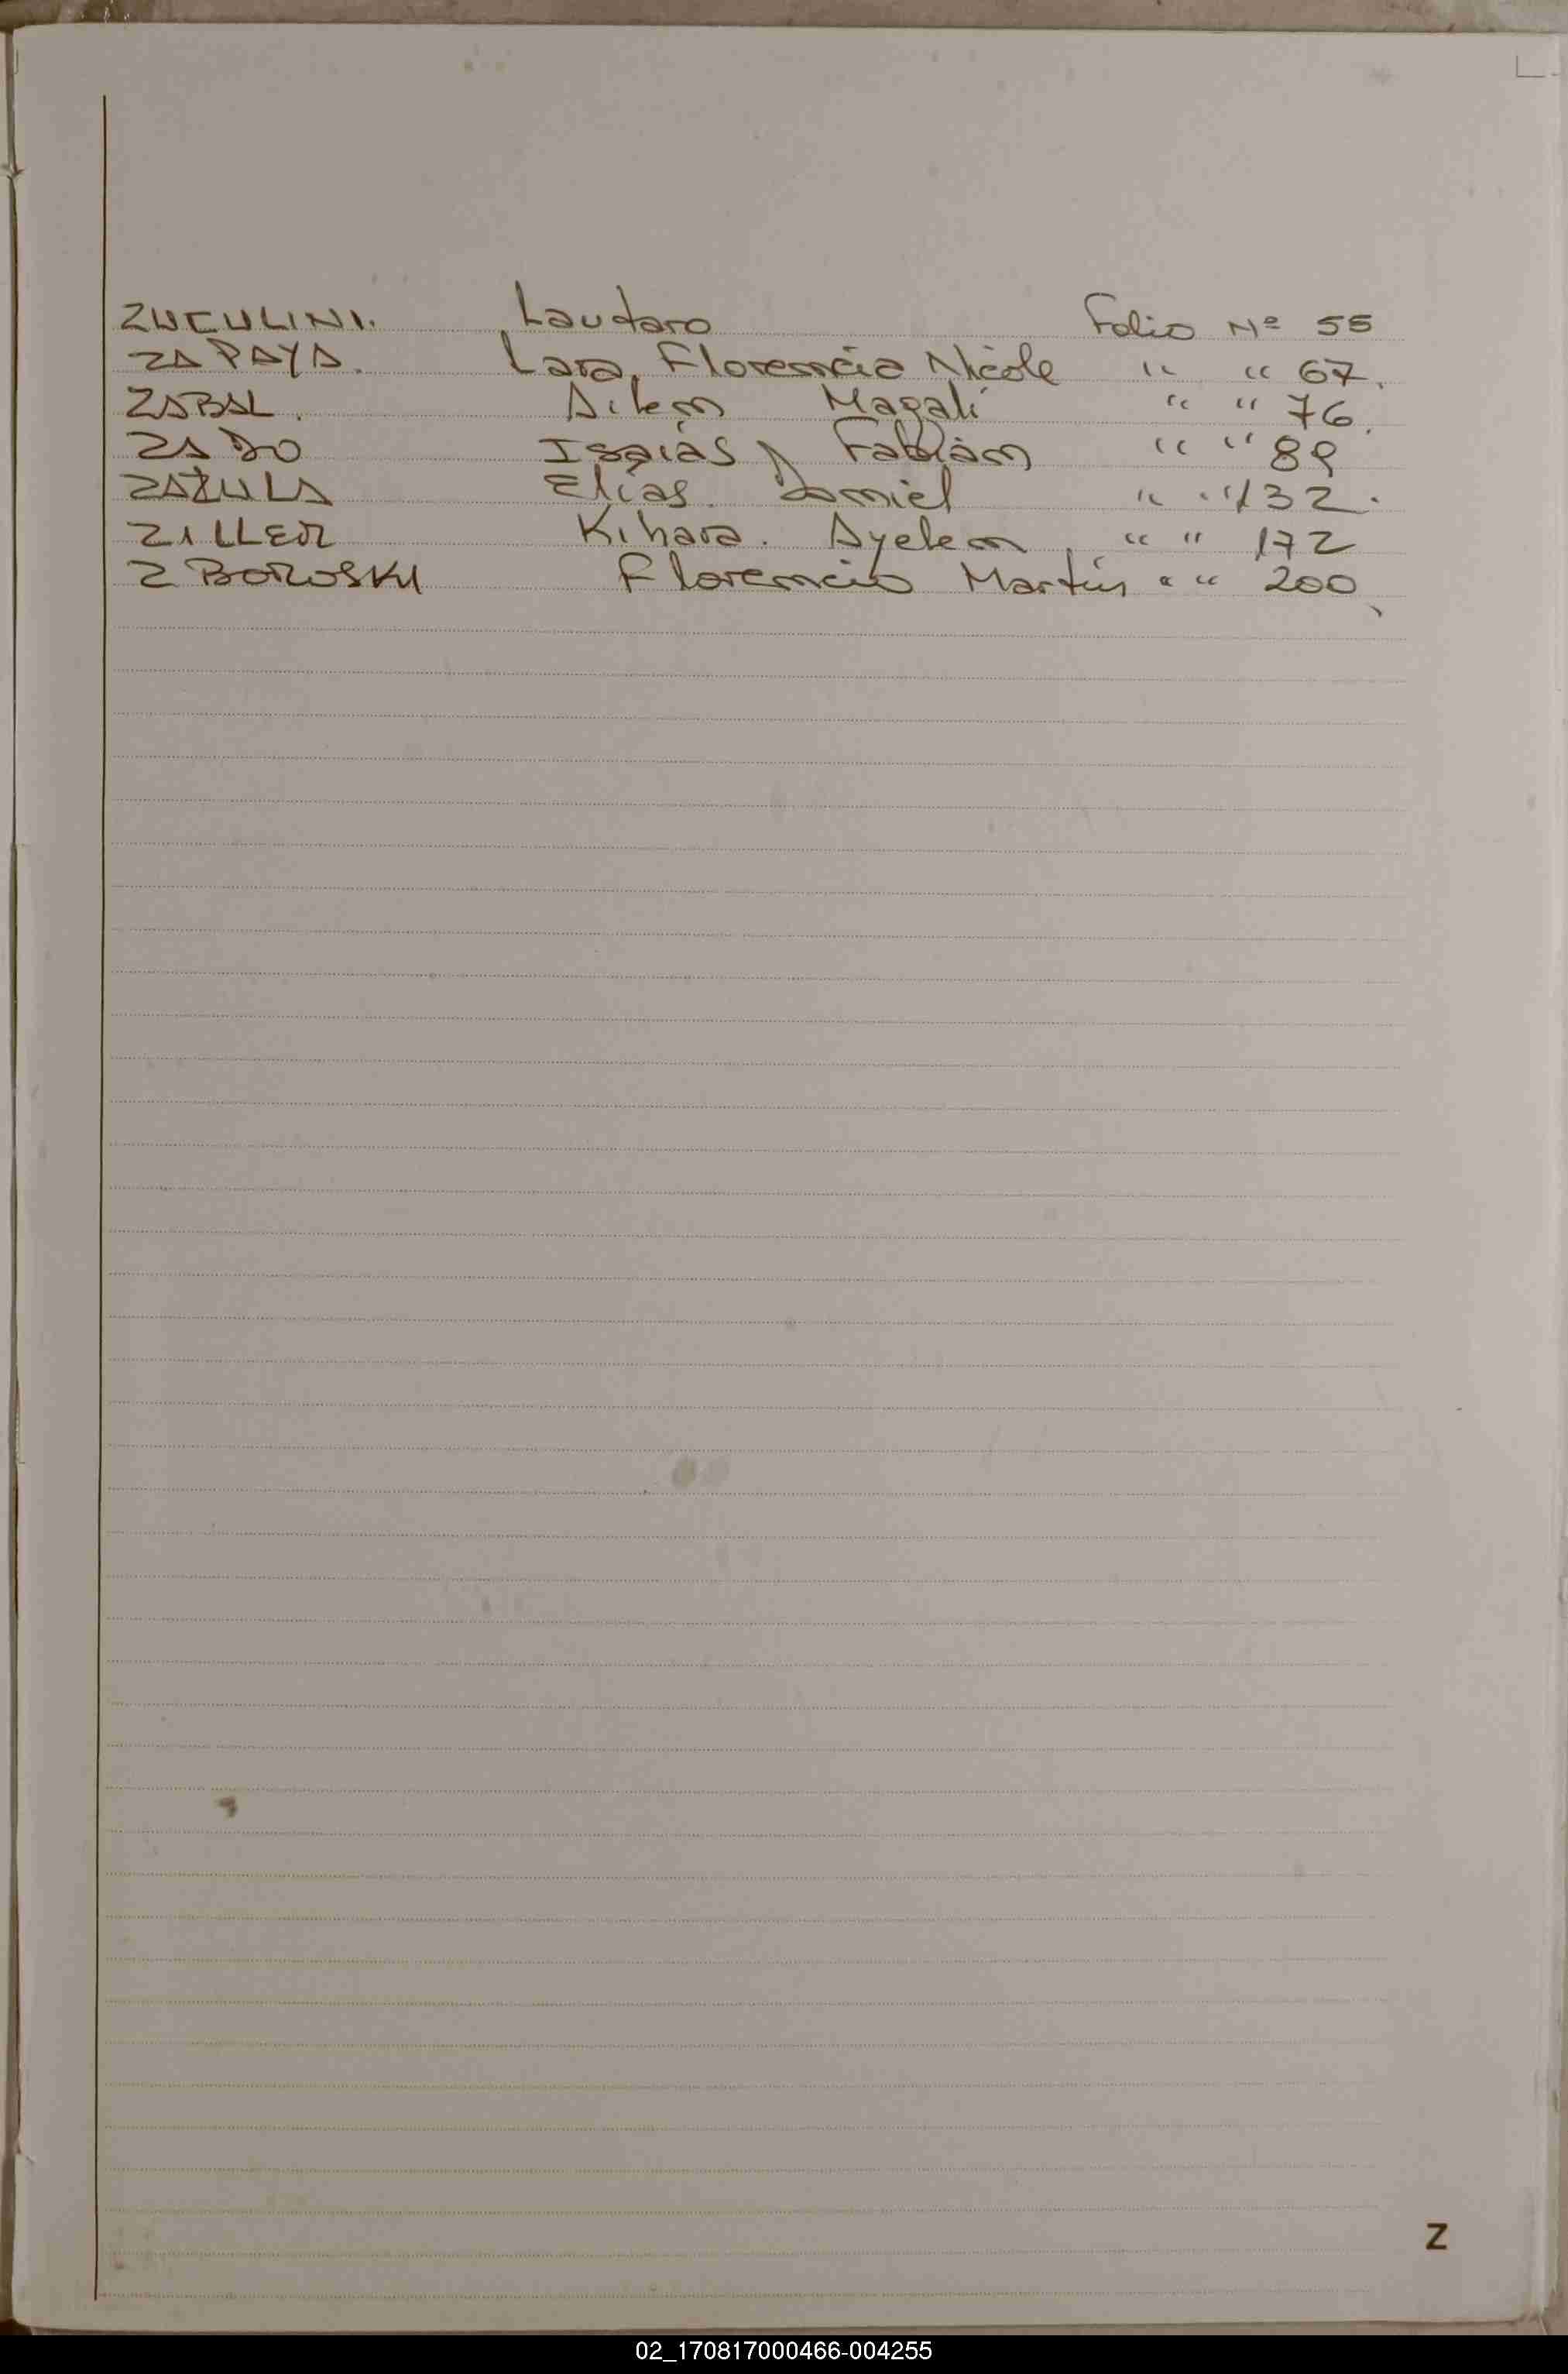 ZUCULINI. Lautaro Folio Nº 55
ZAPAYA. Lara Florencia Nicole " " 67.
ZABAL. Ailen Magali " " 76.
ZADO Isaías Fabián " " 89
ZAZULA Elías Daniel " " 132.
ZILLER Kihara. Ayelen " " 172
ZBOROSKI Florencio Martín " " 200
Z
02_170817000466-004255